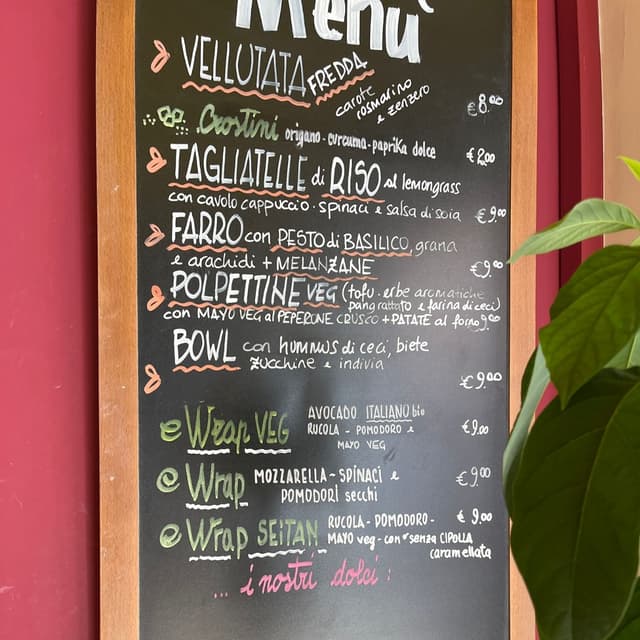 Menù
VELLUTATA FREDDA
carote
rosmarino
e zenzero
€8.00
Crostini origano-curcuma-paprika dolce €2,00
TAGLIATELLE di RISO al lemongrass
con cavolo cappuccio-spinaci e salsa di soia €9.00
FARRO con PESTO di BASILICO, grana
e arachidi + MELANZANE €9.00
POLPETTINE VEG (tofu-erbe aromatiche
pangrattato e farina di ceci)
con MAYO VEG al PEPERONE CRUSCO + PATATE al forno 9.00
BOWL con hummus di ceci, biete
zucchine e indivia
€9.00
Wrap VEG AVOCADO ITALIANO bio
RUCOLA - POMODORO e
MAYO VEG
€9.00
Wrap MOZZARELLA-SPINACI e
POMODORI secchi
€9.00
Wrap SEITAN RUCOLA-POMODORO-
MAYO veg-con *senza CIPOLLA
caramellata
€9.00
... i nostri dolci: